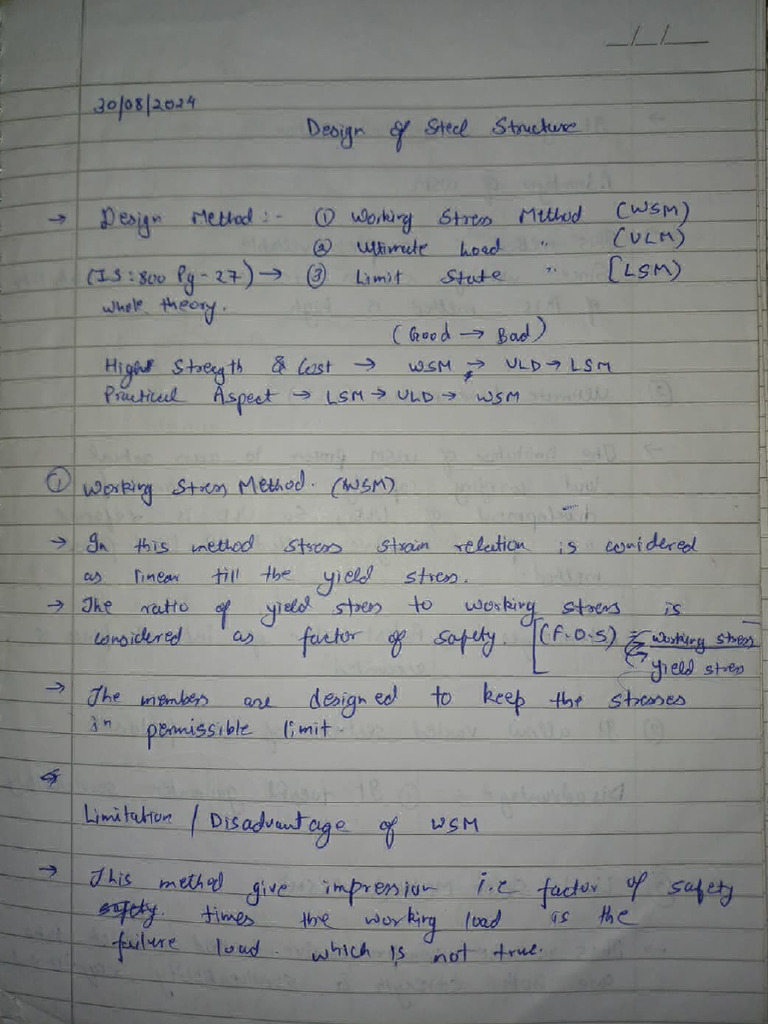 30/08/2024
Design of Steel Structure
→ Design Method :- ① Working Stress Method (WSM)
② Ultimate Load " (ULM)
(IS:800 Pg-27) → ③ Limit State " [LSM)
whole theory.
(Good → Bad)
High Strength & Cost → WSM → ULD → LSM
Practical Aspect → LSM → ULD → WSM
① Working Stress Method. (WSM)
→ In this method stress strain relation is considered
as linear till the yield stress.
→ The ratio of yield stress to working stress is
considered as factor of safety. [(F.O.S) = working stress
yield stress
→ The members are designed to keep the stresses
in permissible limit.
Limitation / Disadvantage of WSM
→ This method give impression i.e factor of safety
safety. times the working load is the
failure load. which is not true.